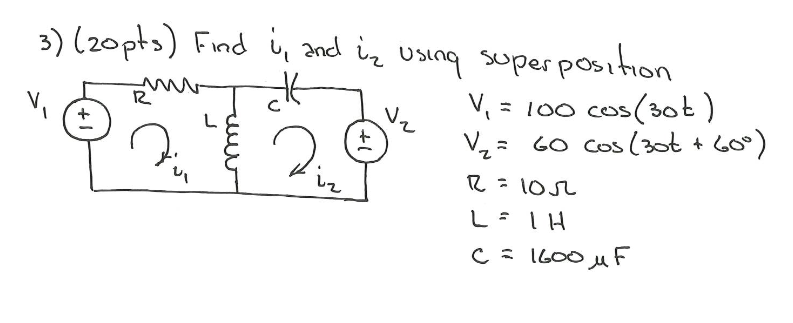 3) (20pts) Find i₁ and i₂ using superposition
V₁ R C L V₂ V₁ = 100 cos(30t)
+ - + - V₂ = 60 cos(30t + 60°)
i₁ i₂ R = 10Ω
L = 1 H
C = 1600 μF